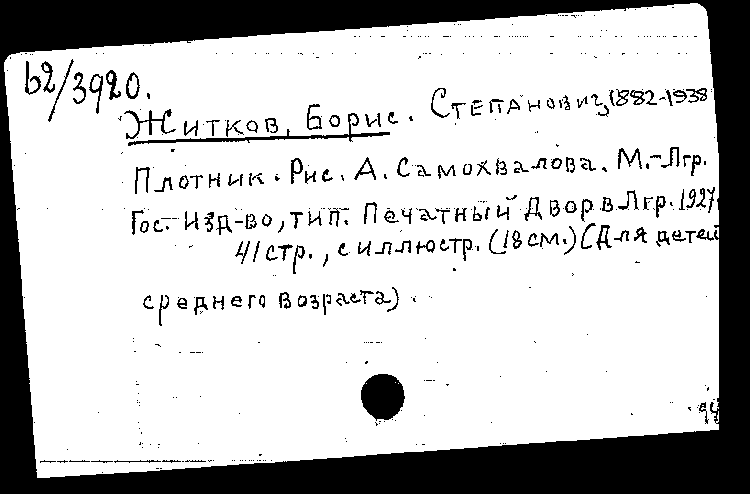 62/3920.
Житков, Борис. Степанович, 1882-1938
Плотник. Рис. А. Самохвалова. М.-Лгр.
Гос. Изд-во, тип. Печатный Двор в Лгр. 1927.
41 стр., с иллюстр. (18 см.) (Для детей
среднего возраста).